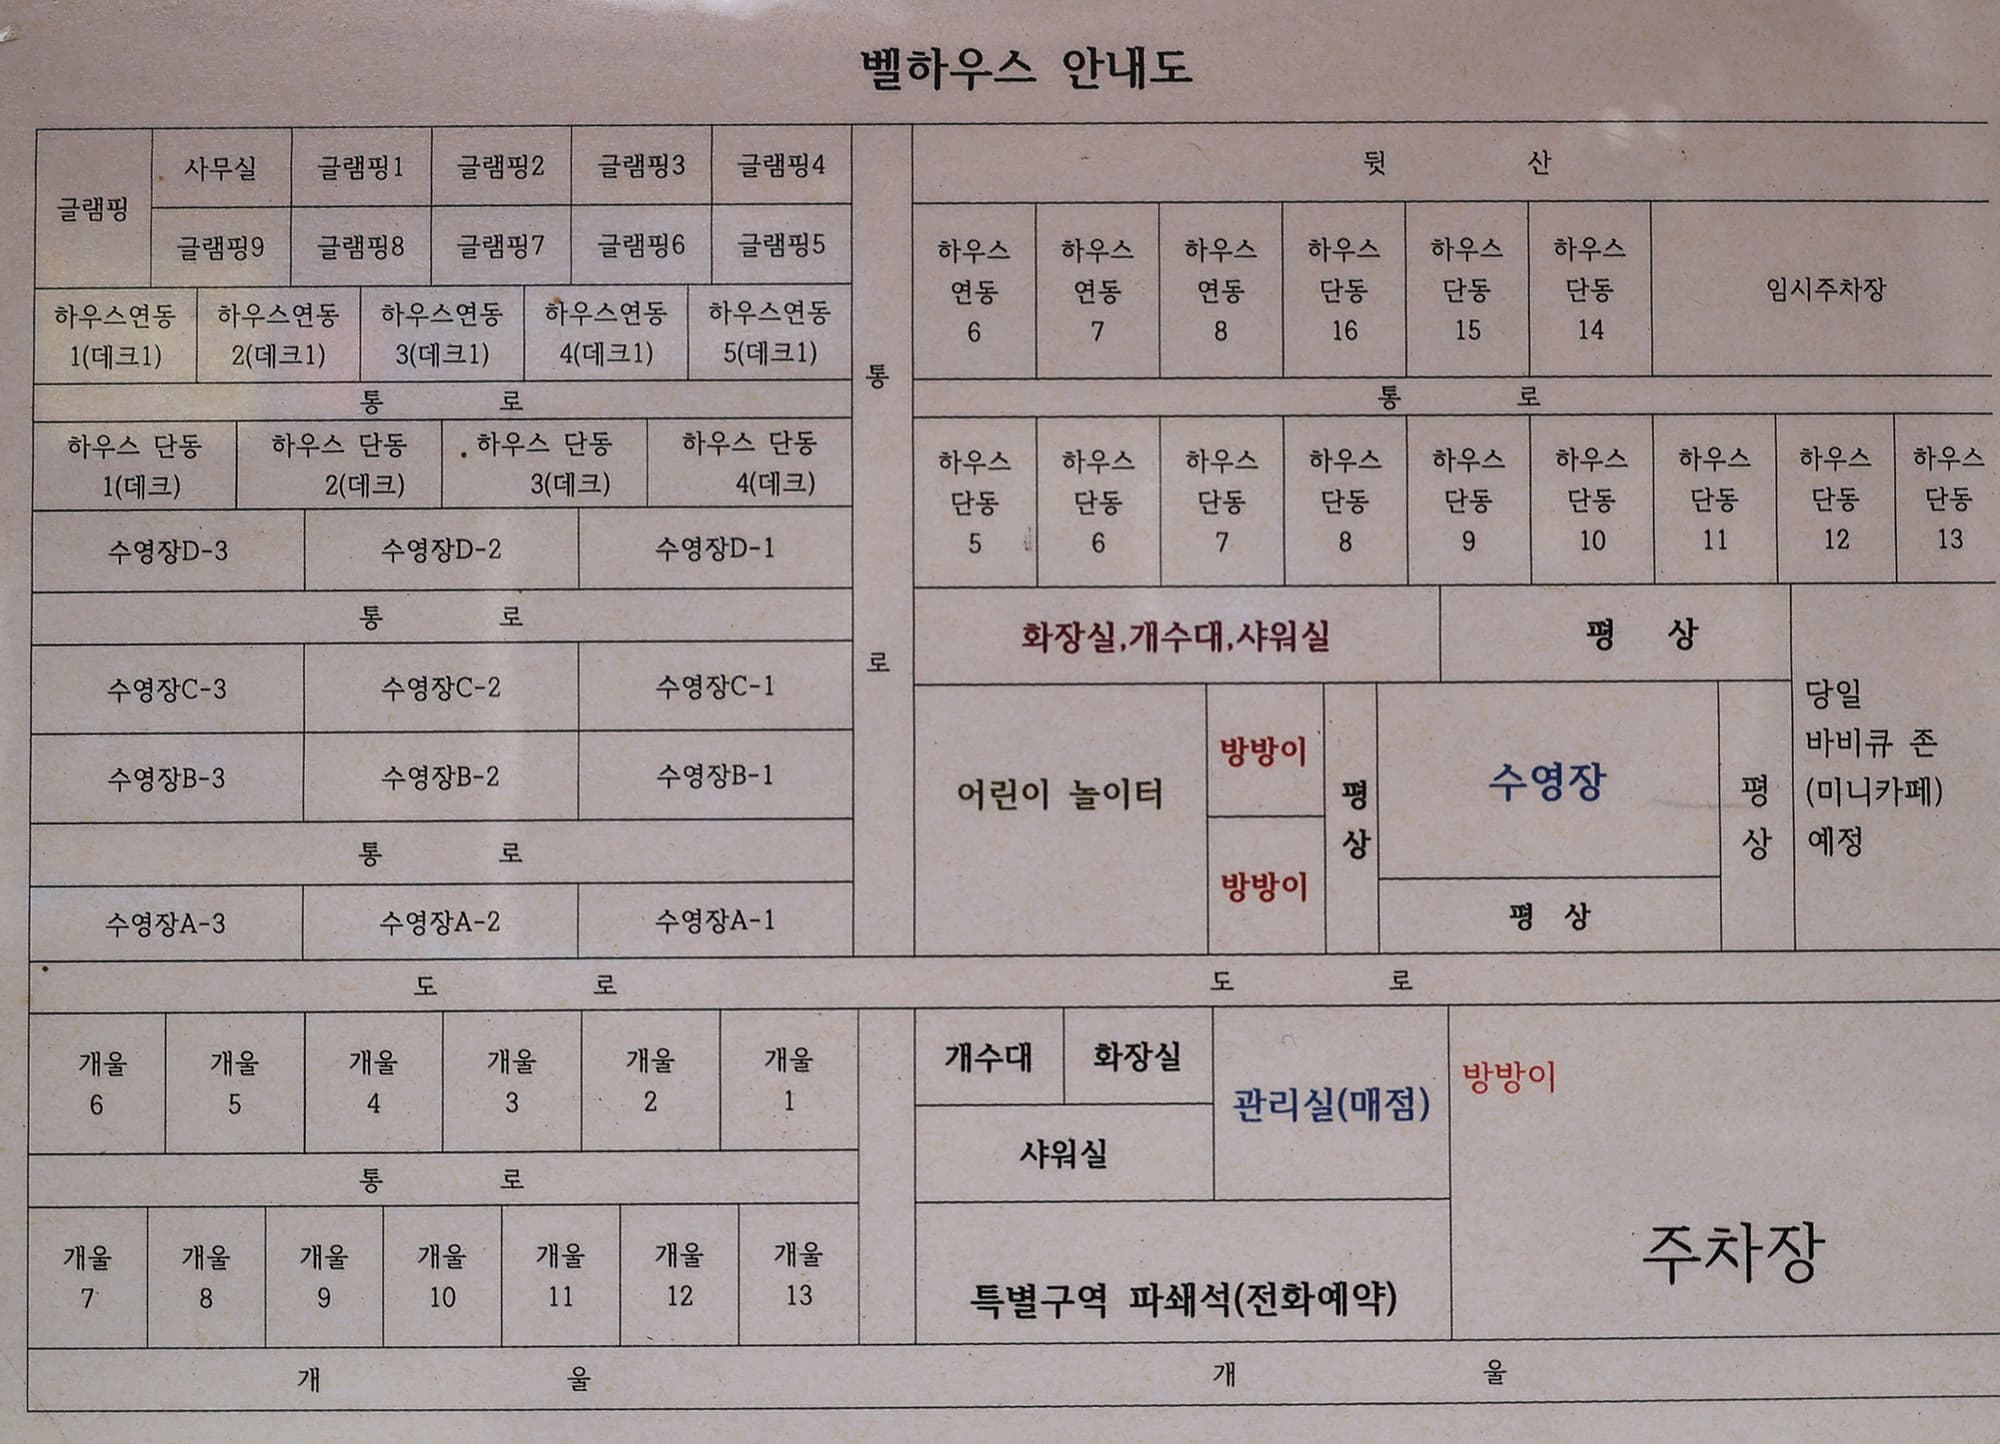 벨하우스 안내도
글램핑
사무실 글램핑1 글램핑2 글램핑3 글램핑4
글램핑9 글램핑8 글램핑7 글램핑6 글램핑5
하우스연동 하우스연동 하우스연동 하우스연동 하우스연동
1(데크1) 2(데크1) 3(데크1) 4(데크1) 5(데크1)
통 로
하우스 단동 하우스 단동 하우스 단동 하우스 단동
1(데크) 2(데크) 3(데크) 4(데크)
수영장D-3 수영장D-2 수영장D-1
통 로
수영장C-3 수영장C-2 수영장C-1
수영장B-3 수영장B-2 수영장B-1
통 로
수영장A-3 수영장A-2 수영장A-1
통
로
뒷 산
하우스 하우스 하우스 하우스 하우스 하우스
연동 연동 연동 단동 단동 단동
6 7 8 16 15 14
임시주차장
통 로
하우스 하우스 하우스 하우스 하우스 하우스 하우스 하우스 하우스
단동 단동 단동 단동 단동 단동 단동 단동 단동
5 6 7 8 9 10 11 12 13
화장실,개수대,샤워실
평 상
어린이 놀이터
방방이
방방이
평
상
수영장
평 상
평
상
당일
바비큐 존
(미니카페)
예정
도 로 도 로
개울 개울 개울 개울 개울 개울
6 5 4 3 2 1
통 로
개울 개울 개울 개울 개울 개울 개울
7 8 9 10 11 12 13
개수대 화장실
샤워실
관리실(매점)
특별구역 파쇄석(전화예약)
방방이
주차장
개 울 개 울